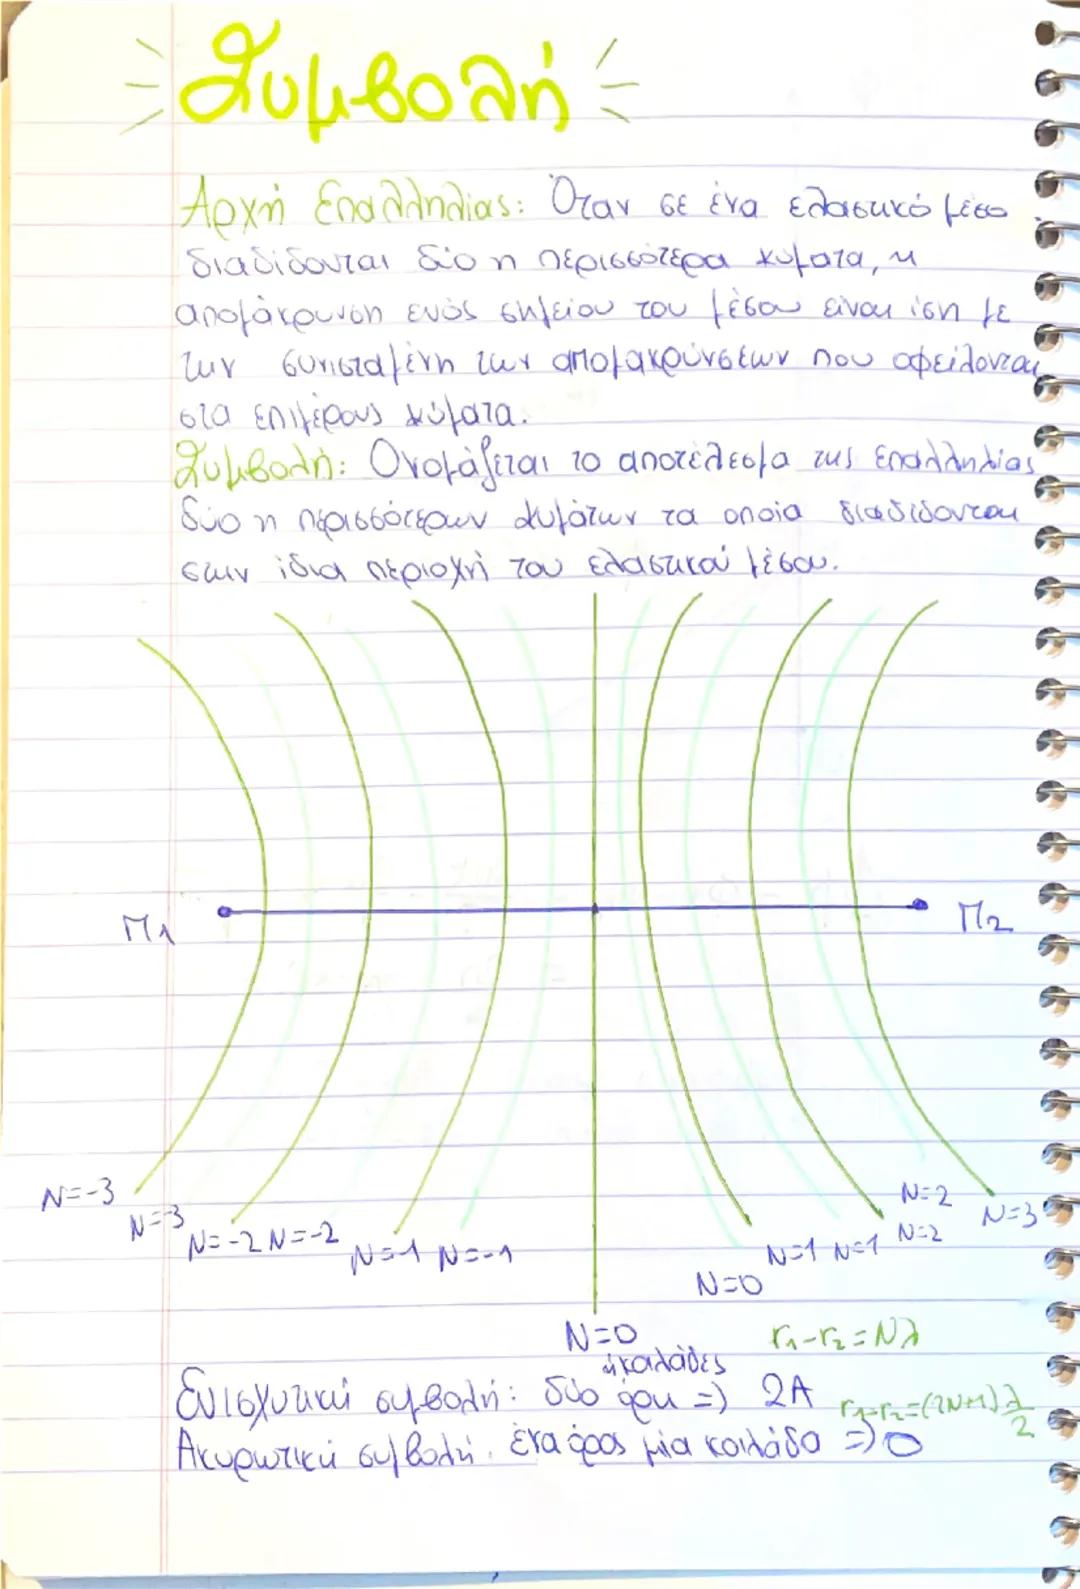 Συμβολή
Αρχή Επαλληλίας: Όταν σε ένα ελαστικό μέσο
διαδίδονται δύο η περισσότερα κύματα, η
απομάκρυνση ενός σημείου του μέσου είναι ίση με
την συνισταμένη των απομακρύνσεων που οφείλονται
στα επιμέρους κύματα.
Συμβολή: Ονομάζεται το αποτέλεσμα της επαλληλίας
δύο η περισσότερων κυμάτων τα οποία διαδίδονται
στην ίδια περιοχή του ελαστικού μέσου.
Π1 Π2
N=-3 N=-3 N=-2 N=-2 N=-1 N=-1 N=0 N=0 N=1 N=1 N=2 N=2 N=3
r1-r2=Nλ
ή κοιλάδες
Ενισχυτική συμβολή: δύο όρη => 2A r1-r2=(2N+1)λ/2
Ακυρωτική συμβολή: ένα όρος μία κοιλάδα => 0